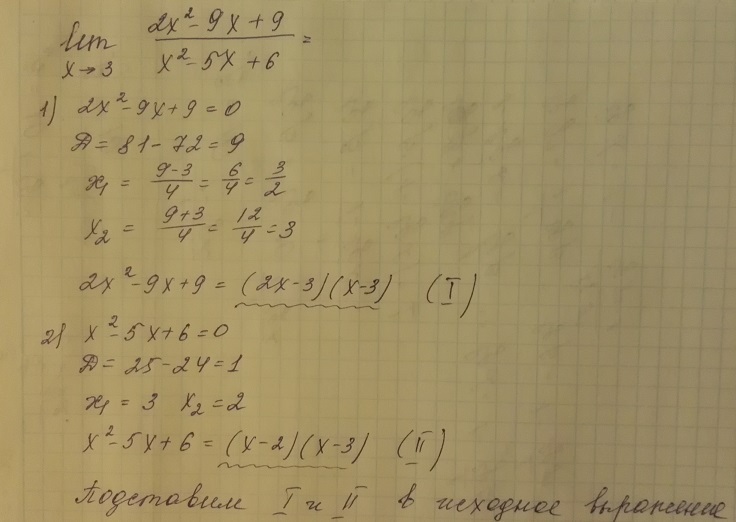 lim 2x² - 9x + 9 / x² - 5x + 6 =
x→3
1) 2x² - 9x + 9 = 0
D = 81 - 72 = 9
x₁ = 9-3/4 = 6/4 = 3/2
x₂ = 9+3/4 = 12/4 = 3
2x² - 9x + 9 = (2x-3)(x-3) (I)
2) x² - 5x + 6 = 0
D = 25 - 24 = 1
x₁ = 3 x₂ = 2
x² - 5x + 6 = (x-2)(x-3) (II)
Подставим I и II в исходное выражение